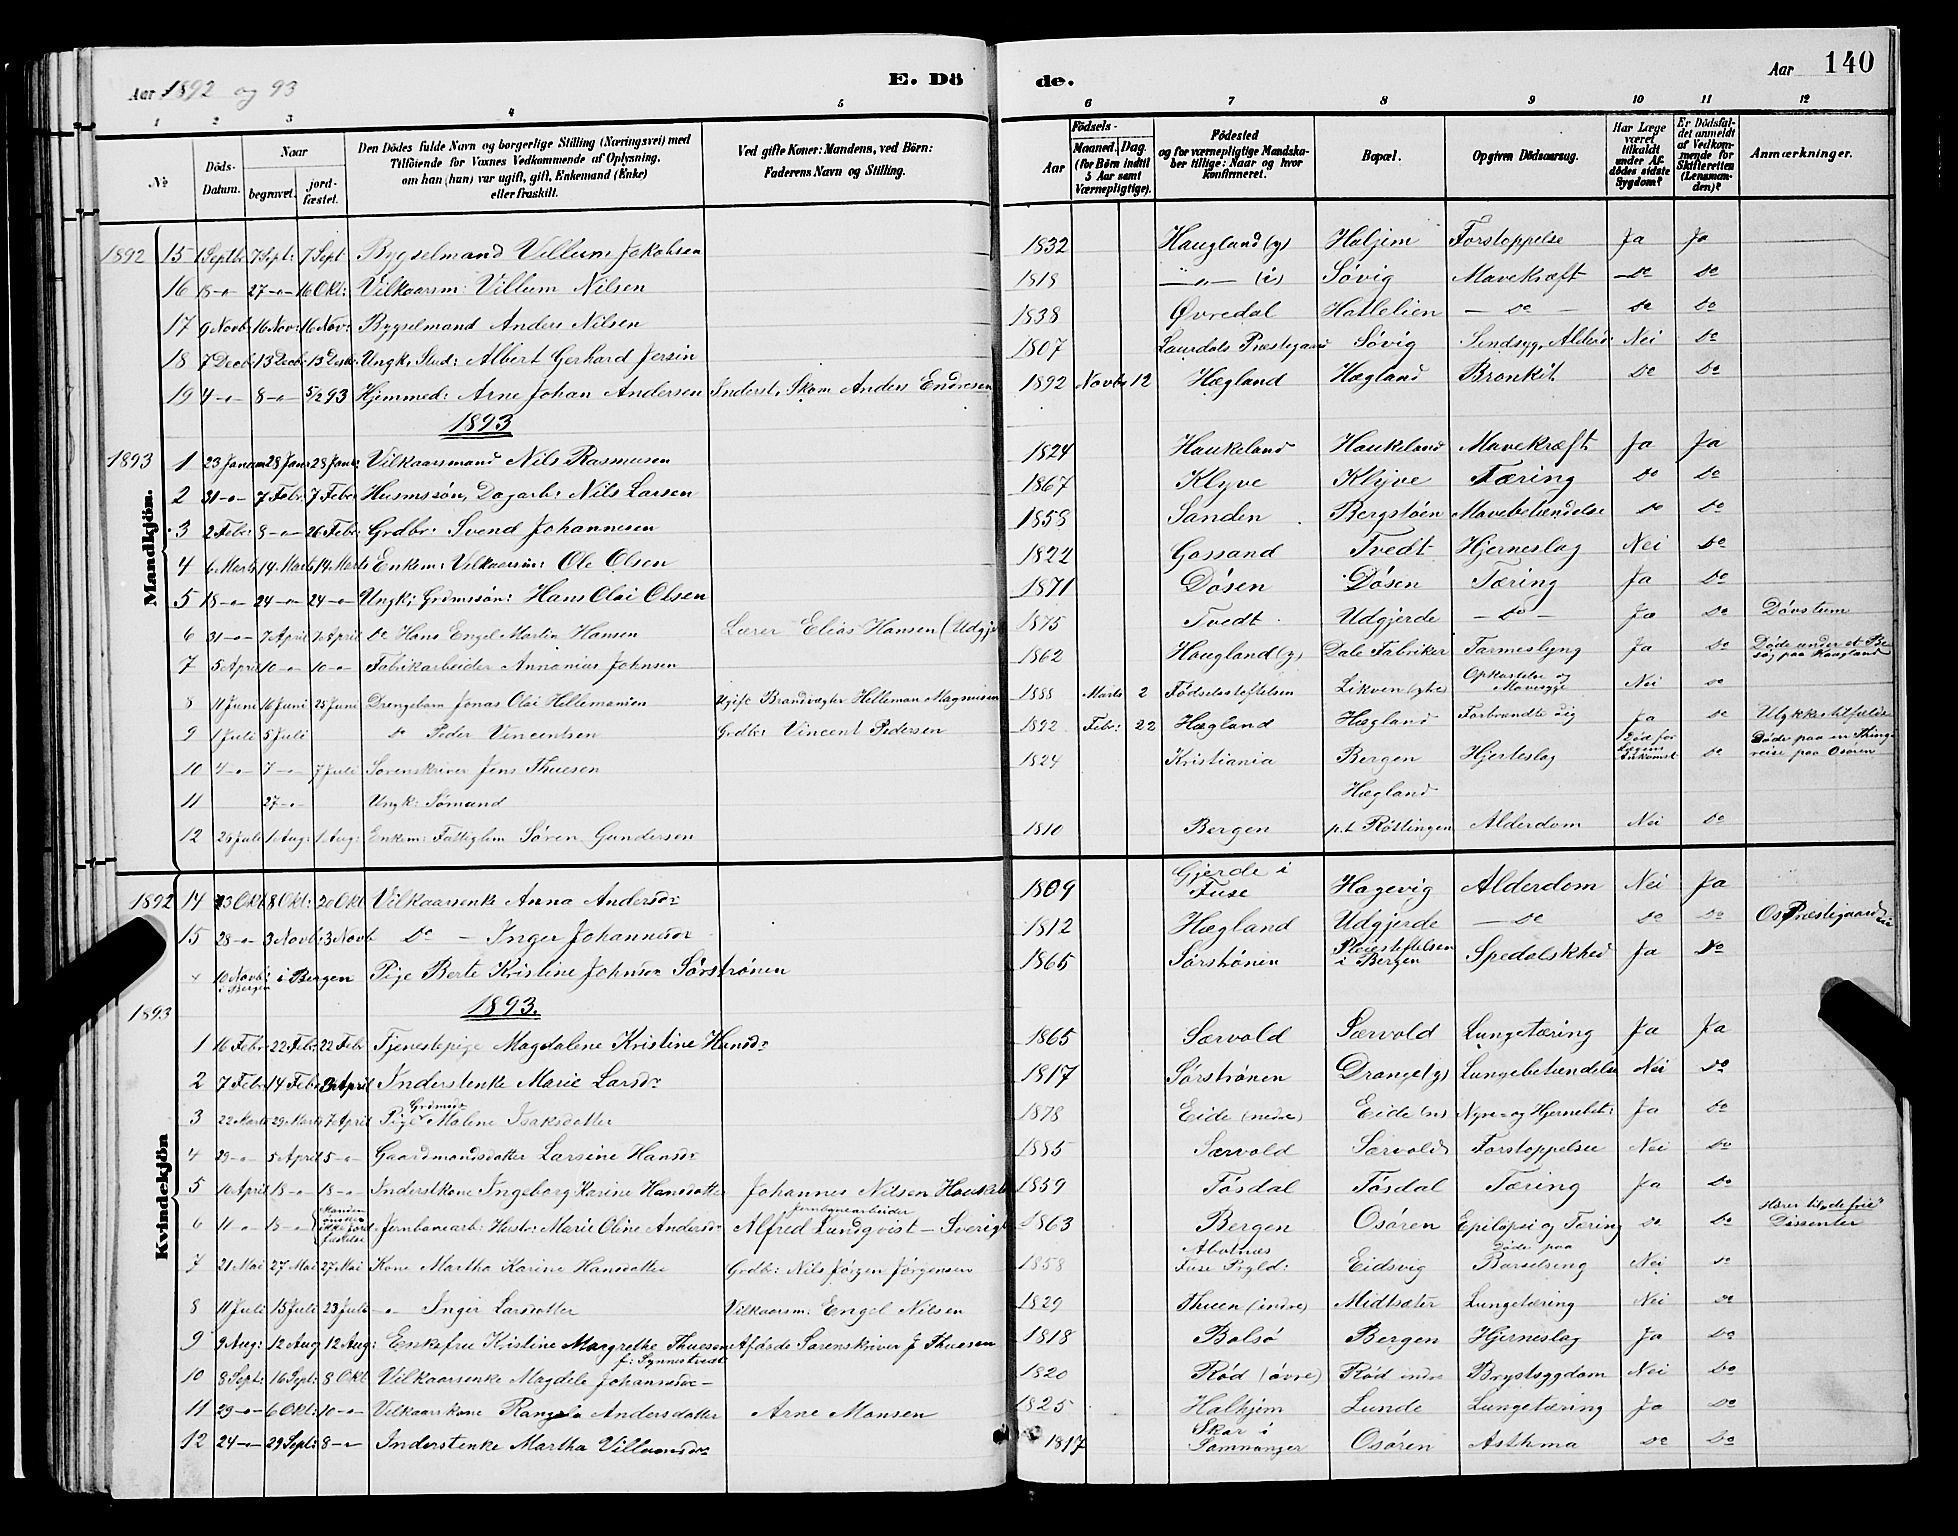 Aar 1892 og 93
E. Dö de.
Aar 140
1 2 3 4 5 6 7 8 9 10 11 12
№
Döds-Datum.
Naar
begravet.
jord-fæstet.
Den Dödes fulde Navn og borgerlige Stilling (Næringsvei) med
Tilföiende for Voxnes Vedkommende af Oplysning,
om han (hun) var ugift, gift, Enkemand (Enke)
eller fraskilt.
Ved gifte Koner: Mandens, ved Börn:
Faderens Navn og Stilling.
Födsels-
Aar
Maaned. Dag.
(for Börn indtil
5 Aar samt
Værnepligtige).
Födested
og for værnepligtige Mandska-
ber tillige: Naar og hvor
konfirmeret.
Bopæl.
Opgiven Dödsaarsag.
Har Læge
været
tilkaldt
under Af-
dödes sidste
Sygdom?
Er Dödsfal-
det anmeldt
af Vedkom-
mende for
Skifteretten
(Lensman-
den)?
Anmærkninger.
Mandkjön.
1892 15 1 Septb: 7 Sept: 7 Sept Bygselmand Villum Jakobsen 1832 Haugland (y) Haljem Forstoppelse Ja Ja
16 18 -"- 27 -"- 16 Okt: Vilkaarsm: Villum Nilsen 1818 -"- (i) Søvig Mavekræft Do Do
17 9 Novb: 16 Nov: 16 Nov: Bygselmand Anders Nilsen 1838 Øvredal Hattelien - Do - Do Do
18 7 Decb: 13 Decb: 13 Desb: Ungk, Stud: Albert Gerhard Jersin 1807 Laurdals Præstegaard Søvig Sindsyg, Alderd: Nei Do
19 4 -"- 8 -"- 5/2 93 Hjemmed: Arne Johan Andersen Inderst, Skom Anders Endresen 1892 Novbr 12 Hægland Hægland Bronkit Do Do
1893
1893 1 23 Januar 28 Janr 28 Janr: Vilkaarsmand Nils Rasmusen 1824 Haukeland Haukeland Mavekræft Ja Ja
2 31 -"- 7 Febr 7 Febr Husmssøn, Dagarb: Nils Larsen 1867 Klyve Klyve Tæring Do Do
3 2 Febr: 8 -"- 26 Febr: Grdbr: Svend Johannesen 1858 Sanden Bergstøen Mavebetændelse Do Do
4 6 Marts 14 Marts 14 Marts Enkem: Vilkaarsm: Ole Olsen 1822 Gassand Tvedt Hjerneslag Nei Do
5 18 -"- 24 -"- 24 -"- Ungk; Grdmssøn: Hans Olai Olsen 1871 Døsen Døsen Tæring Ja Do
6 31 -"- 7 April 7 April Do Hans Engel Martin Hansen Lærer Elias Hansen (Udgje 1875 Tvedt Udgjerde - Do - Ja Do Døvstum
7 5 April 10 -"- 10 -"- Fabrikarbeider Annanias Johnsen 1862 Haugland (y) Dale Fabriker Tarmeslyng Ja Do Døde under et Be-
søg paa Haugland
8 11 Juni 16 Juni 25 Juni Drengebarn Jonas Olai Hellemanien Ugift Brandvagter Helleman Magnusen 1888 Marts 2 Fødselsstiftelsen Likven (ytre) Opkastelse og
Mavesyge Nei Do
9 1 Juli 5 Juli Do Peder Vincentsen Grdbr Vincent Pedersen 1892 Febr: 22 Hægland Hægland Forbrændte sig Ja Do Ulykkestilfælde
10 4 -"- 7 -"- 7 Juli Sorenskriver Jens Thuesen 1824 Kristiania Bergen Hjerteslag Død før
Lægens
Ankomst Do Døde paa en Thing-
reise paa Osøren
11 27 -"- Ungk: Sømand Hægland
12 29 Juli 1 Aug: 1 Aug: Enkem: Fattiglem Søren Gundersen 1810 Bergen p.t Røttingen Alderdom Nei Do
Kvindekjön
1892 14 13 Okt 18 Okt: 20 Okt Vilkaarsenke Anna Andersdr 1809 Gjerde i
Fuse Hagevig Alderdom Nei Ja
15 28 -"- 3 Novb: 3 Novb Do - Inger Johannesdr 1812 Hægland Udgjerde - Do Do Do Os Præstegaard
10 Novb: i Bergen i Bergen Pige Berte Kristine Johnsdr Sørstrønen 1865 Sørstrønen Pleiestiftelsen
i Bergen Spedalskhed Ja Do
1893 1893.
1 16 Febr 22 Febr: 22 Febr Tjenestepige Magdalene Kristine Hansdr 1865 Særvold Særvold Lungetæring Ja Ja
2 7 Febr 14 Febr 3 April Inderstenke Marie Larsdr 1817 Sørstrønen Drange (y) Lungebetændelse Nei Do
3 22 Marts 29 Marts 7 April Pige Grdmdr Malene Isaksdatter 1878 Eide (nedre) Eide (n) Nyre- og Hjernebet: Ja Do
4 29 -"- 5 April 5 -"- Gaardmandsdatter Larsine Hansdr 1885 Særvold Særvold Forstoppelse Nei Do
5 10 April 18 -"- 18 -"- Inderstkone Ingeborg Karine Hansdatter Johannes Nilsen Haukel 1859 Tøsdal Tøsdal Tæring Ja Do
6 11 -"- 15 -"- Manden
ønsker
ikke Jord-
fæstelse Jernbanearb: Hustr: Marie Oline Andersdr Jernbanearbeider
Alfred Lundqvist - Sverige 1863 Bergen Osøren Epilepsi og Tæring Do Do Hører til "de frie"
Dissenter
7 21 Mai 27 Mai 27 Mai Kone Martha Karine Hansdatter Grdbr: Nils Jørgen Jørgensen 1858 Fuse Prgld: Eidsvig Døde paa
Barselseng Nei Do
8 11 Juli 15 Juli 23 Juli -"- Inger Larsdatter Vilkaarsm: Engel Nilsen 1829 Thuen (indre) Midtsæter Lungetæring Nei Do
9 9 Aug: 12 Aug 12 Aug: Enkefru Kristine Margrethe Thuesen
f: Synnestvedt Afdøde Sorenskriver J Thuesen 1818 Bolsø Bergen Hjerneslag Ja Do
10 8 Sept: 16 Sept: 8 Okt Vilkaarsenke Magdele Johannesdr 1820 Rød (øvre) Rød indre Brystsygdom Nei Do
11 29 -"- 6 Okt: 10 -"- Vilkaarskone Rangela Andersdatter Arne Monsen 1825 Halhjem Lunde Lungetæring Ja Do
12 24 -"- 29 Sept: 8 -"- Inderstenke Martha Villumsdr 1817 Skar i
Samnanger Osøren Asthma Do Do